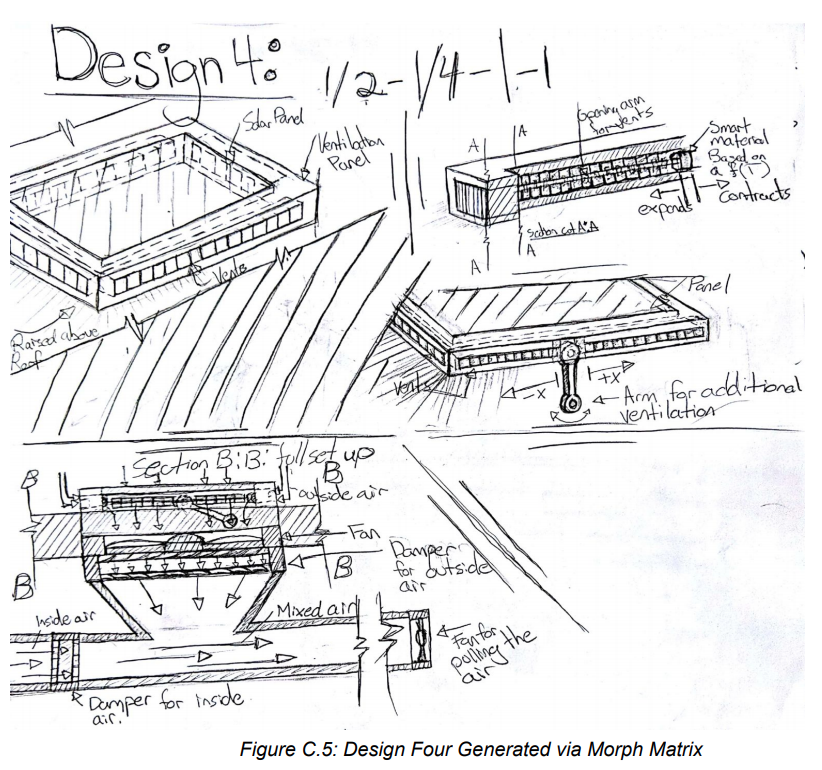 Design 4:
1/2-1/4-1-1
Solar Panel
Ventilation
Panel
Vents
Raised above
Roof
A
A
opening arm
for vents
Smart
material
Based on
a f(T)
expands
contracts
section cut A:A
A
A
Panel
Vents
-x
+x
Arm for additional
ventilation
Section B:B: full set up
B
B
outside air
Fan
B
B
Damper
for outside
air
Inside air
Mixed air
Fan for
polling the
air
Damper for inside
air.
Figure C.5: Design Four Generated via Morph Matrix